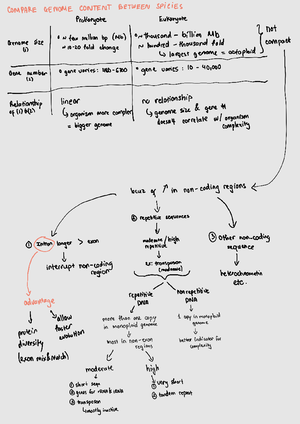 COMPARE GENOME CONTENT BETWEEN SPECIES
Prokaryote
Eukaryote
Genome size
(1)
few million bp (Mb)
10-20 fold change
thousand - billion Mb
hundred - thousand fold
largest genome =
not
compact
Gene number
(2)
gene varies:
gene varies: 10 - 40,000
Relationship
of (1) & (2)
linear
organism more complex
= bigger genome
no relationship
genome size & gene #
doesn't correlate w/ organism
complexity
bcus of ↑ in non-coding regions
① Intron longer > exon
interrupt non-coding
region
② repetitive sequences
moderate / high
repetitive
ex: transposon
(moderate)
③ Other non-coding
sequence
heterochromatic
etc.
advantage
protein
diversity
(exon mix & match)
allow
faster
evolution
repetitive
DNA
more than one copy
in monoploid genome
most in non-exon
regions
nonrepetitive
DNA
1 copy in monoploid
genome
better indicator for
complexity
moderate
① short seqn
② genes for rRNA & tRNA
③ transposon
mostly inactive
high
① very short
② tandem repeat